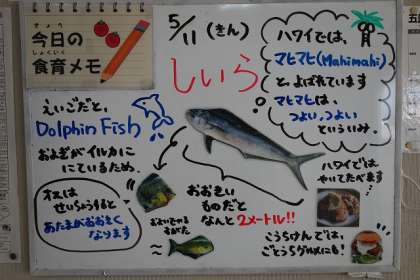 きょう
今日の
しょくいく
食育メモ
5/11 (きん)
しいら
ハワイでは、
マヒマヒ(Mahimahi)
と、よばれています
マヒマヒは、
つよい、つよい
といういみ。
えいごだと、
Dolphin Fish
およぎがイルカに
にているため。
オスは
せいちょうすると
あたまがおおきく
なります
およいでいる
すがた
おおきい
ものだと
なんと2メートル!!
ハワイでは
やいてたべます
こうちけんでは、
ごとうちグルメにも!